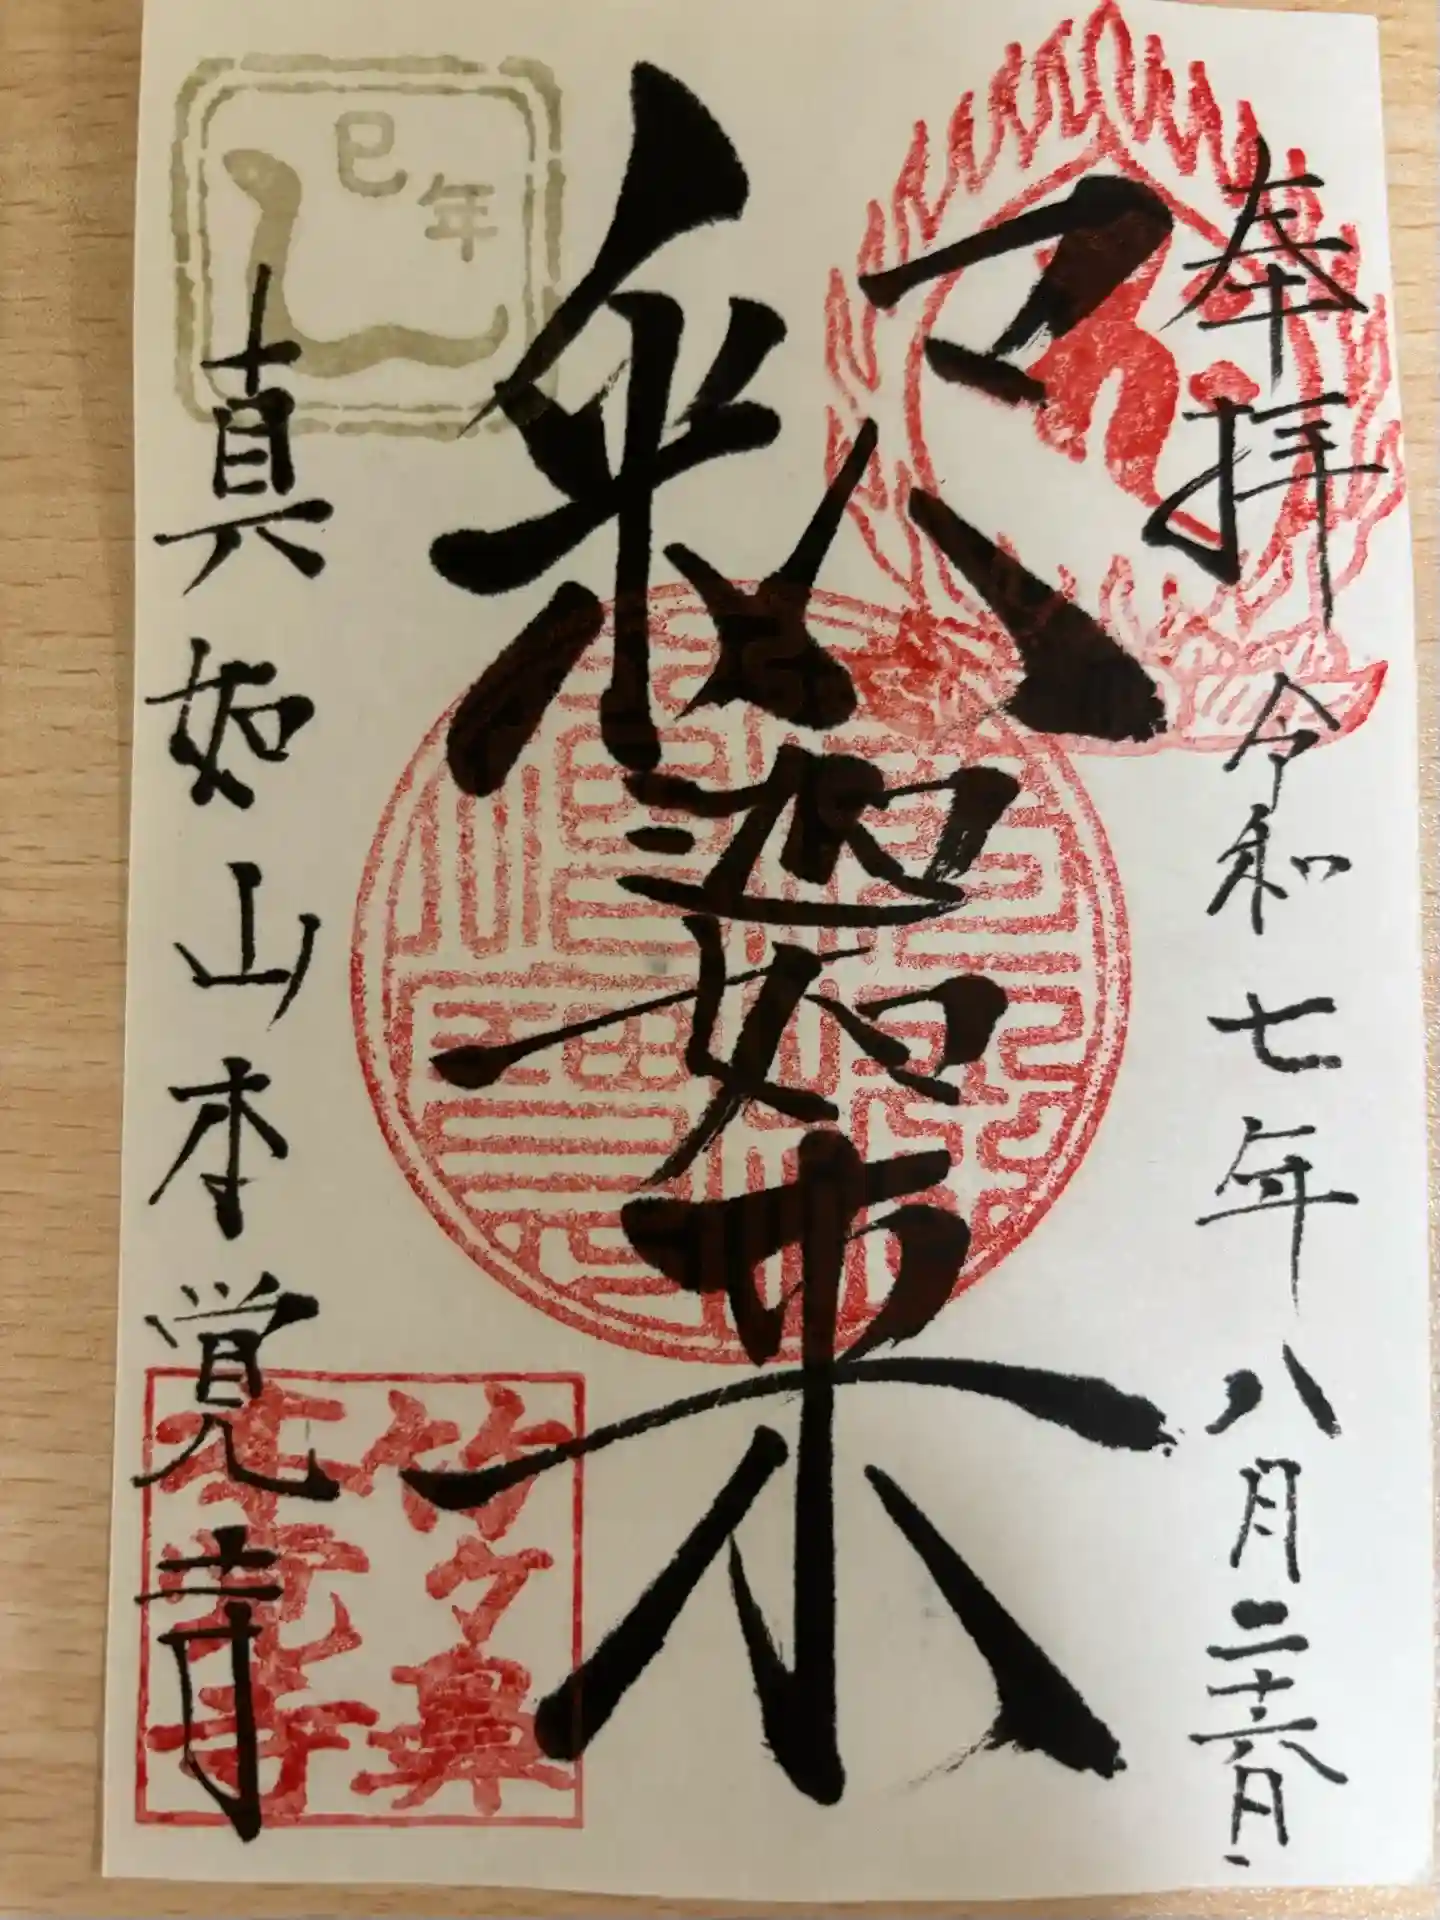 奉拝
令和七年八月二十六日
釈迦如来
巳年
真如山本覚寺
竹ヶ鼻
本覚寺